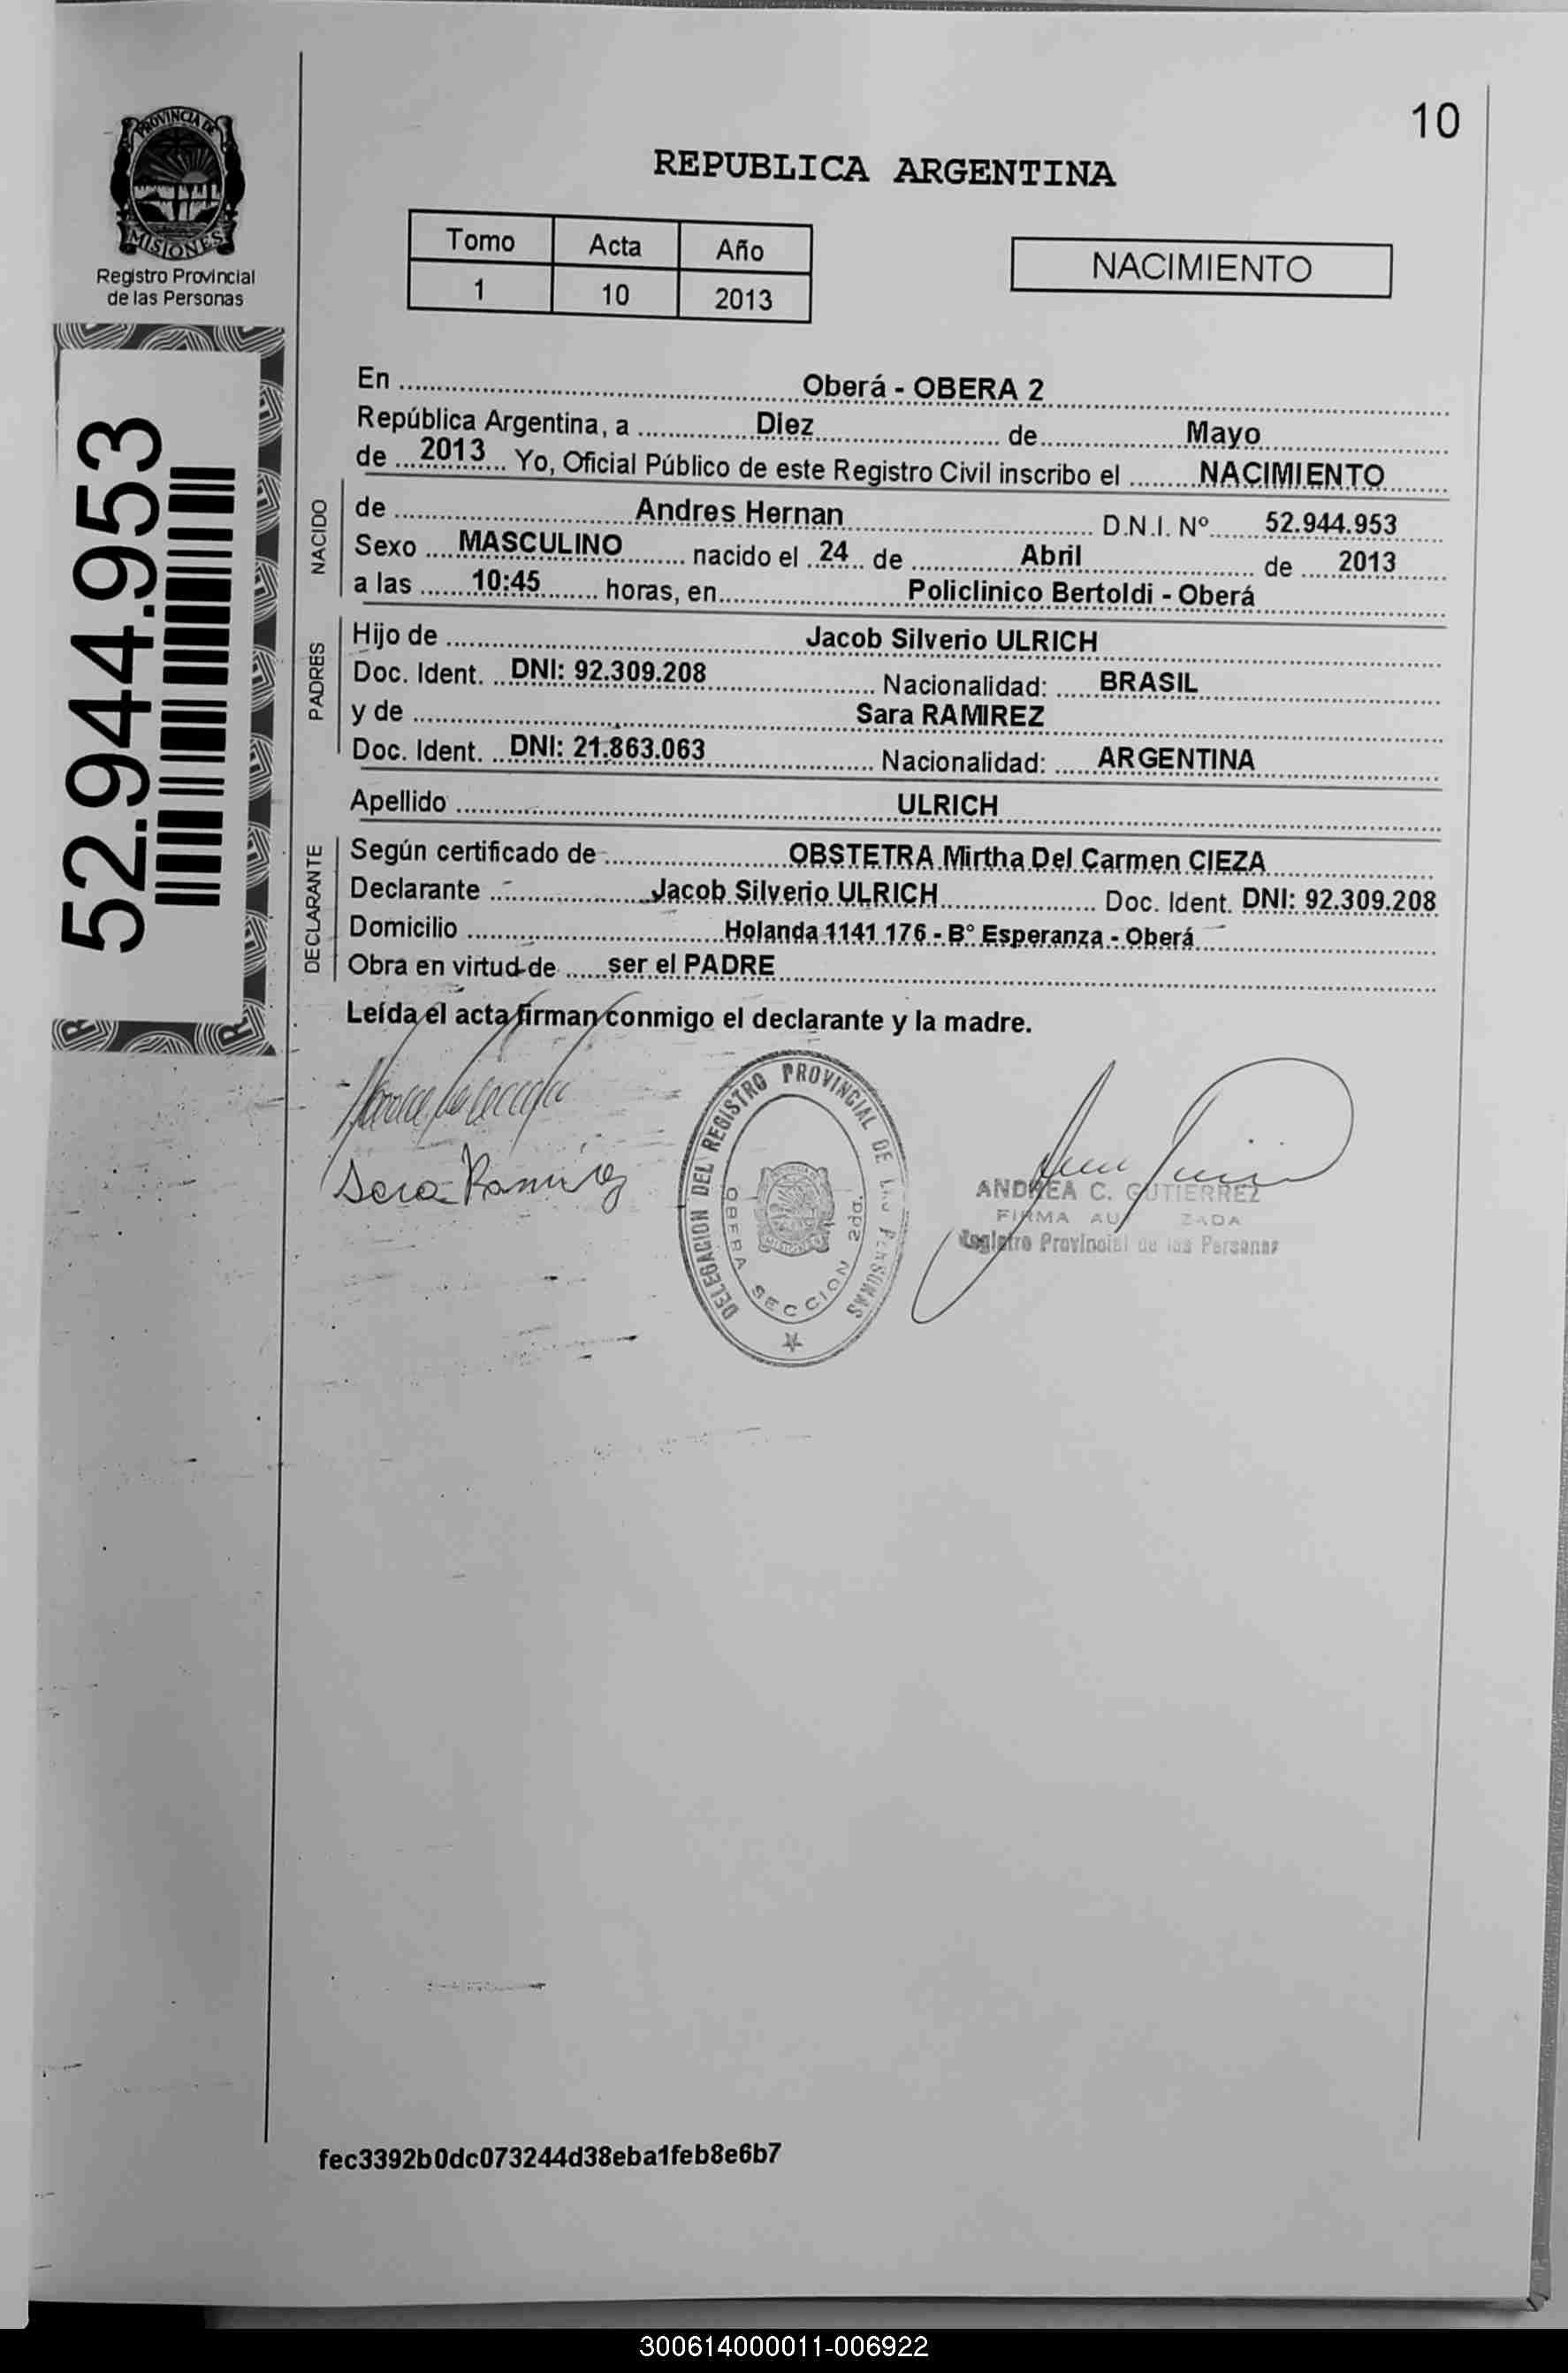 10
PROVINCIA DE
MISIONES
Registro Provincial
de las Personas
REPUBLICA ARGENTINA
Tomo Acta Año
1 10 2013
NACIMIENTO
52.944.953
En Oberá - OBERA 2
República Argentina, a Diez de Mayo
de 2013 Yo, Oficial Público de este Registro Civil inscribo el NACIMIENTO
NACIDO
de Andres Hernan D.N.I. Nº 52.944.953
Sexo MASCULINO nacido el 24 de Abril de 2013
a las 10:45 horas, en Policlinico Bertoldi - Oberá
PADRES
Hijo de Jacob Silverio ULRICH
Doc. Ident. DNI: 92.309.208 Nacionalidad: BRASIL
y de Sara RAMIREZ
Doc. Ident. DNI: 21.863.063 Nacionalidad: ARGENTINA
Apellido ULRICH
DECLARANTE
Según certificado de OBSTETRA Mirtha Del Carmen CIEZA
Declarante Jacob Silverio ULRICH Doc. Ident. DNI: 92.309.208
Domicilio Holanda 1141 176 - B° Esperanza - Oberá
Obra en virtud de ser el PADRE
Leída el acta firman conmigo el declarante y la madre.
Sara Ramirez
DELEGACION DEL REGISTRO PROVINCIAL DE LAS PERSONAS
OBERA SECCION 2da.
ANDREA C. GUTIERREZ
FIRMA
Registro Provincial de las Personas
fec3392b0dc073244d38eba1feb8e6b7
300614000011-006922